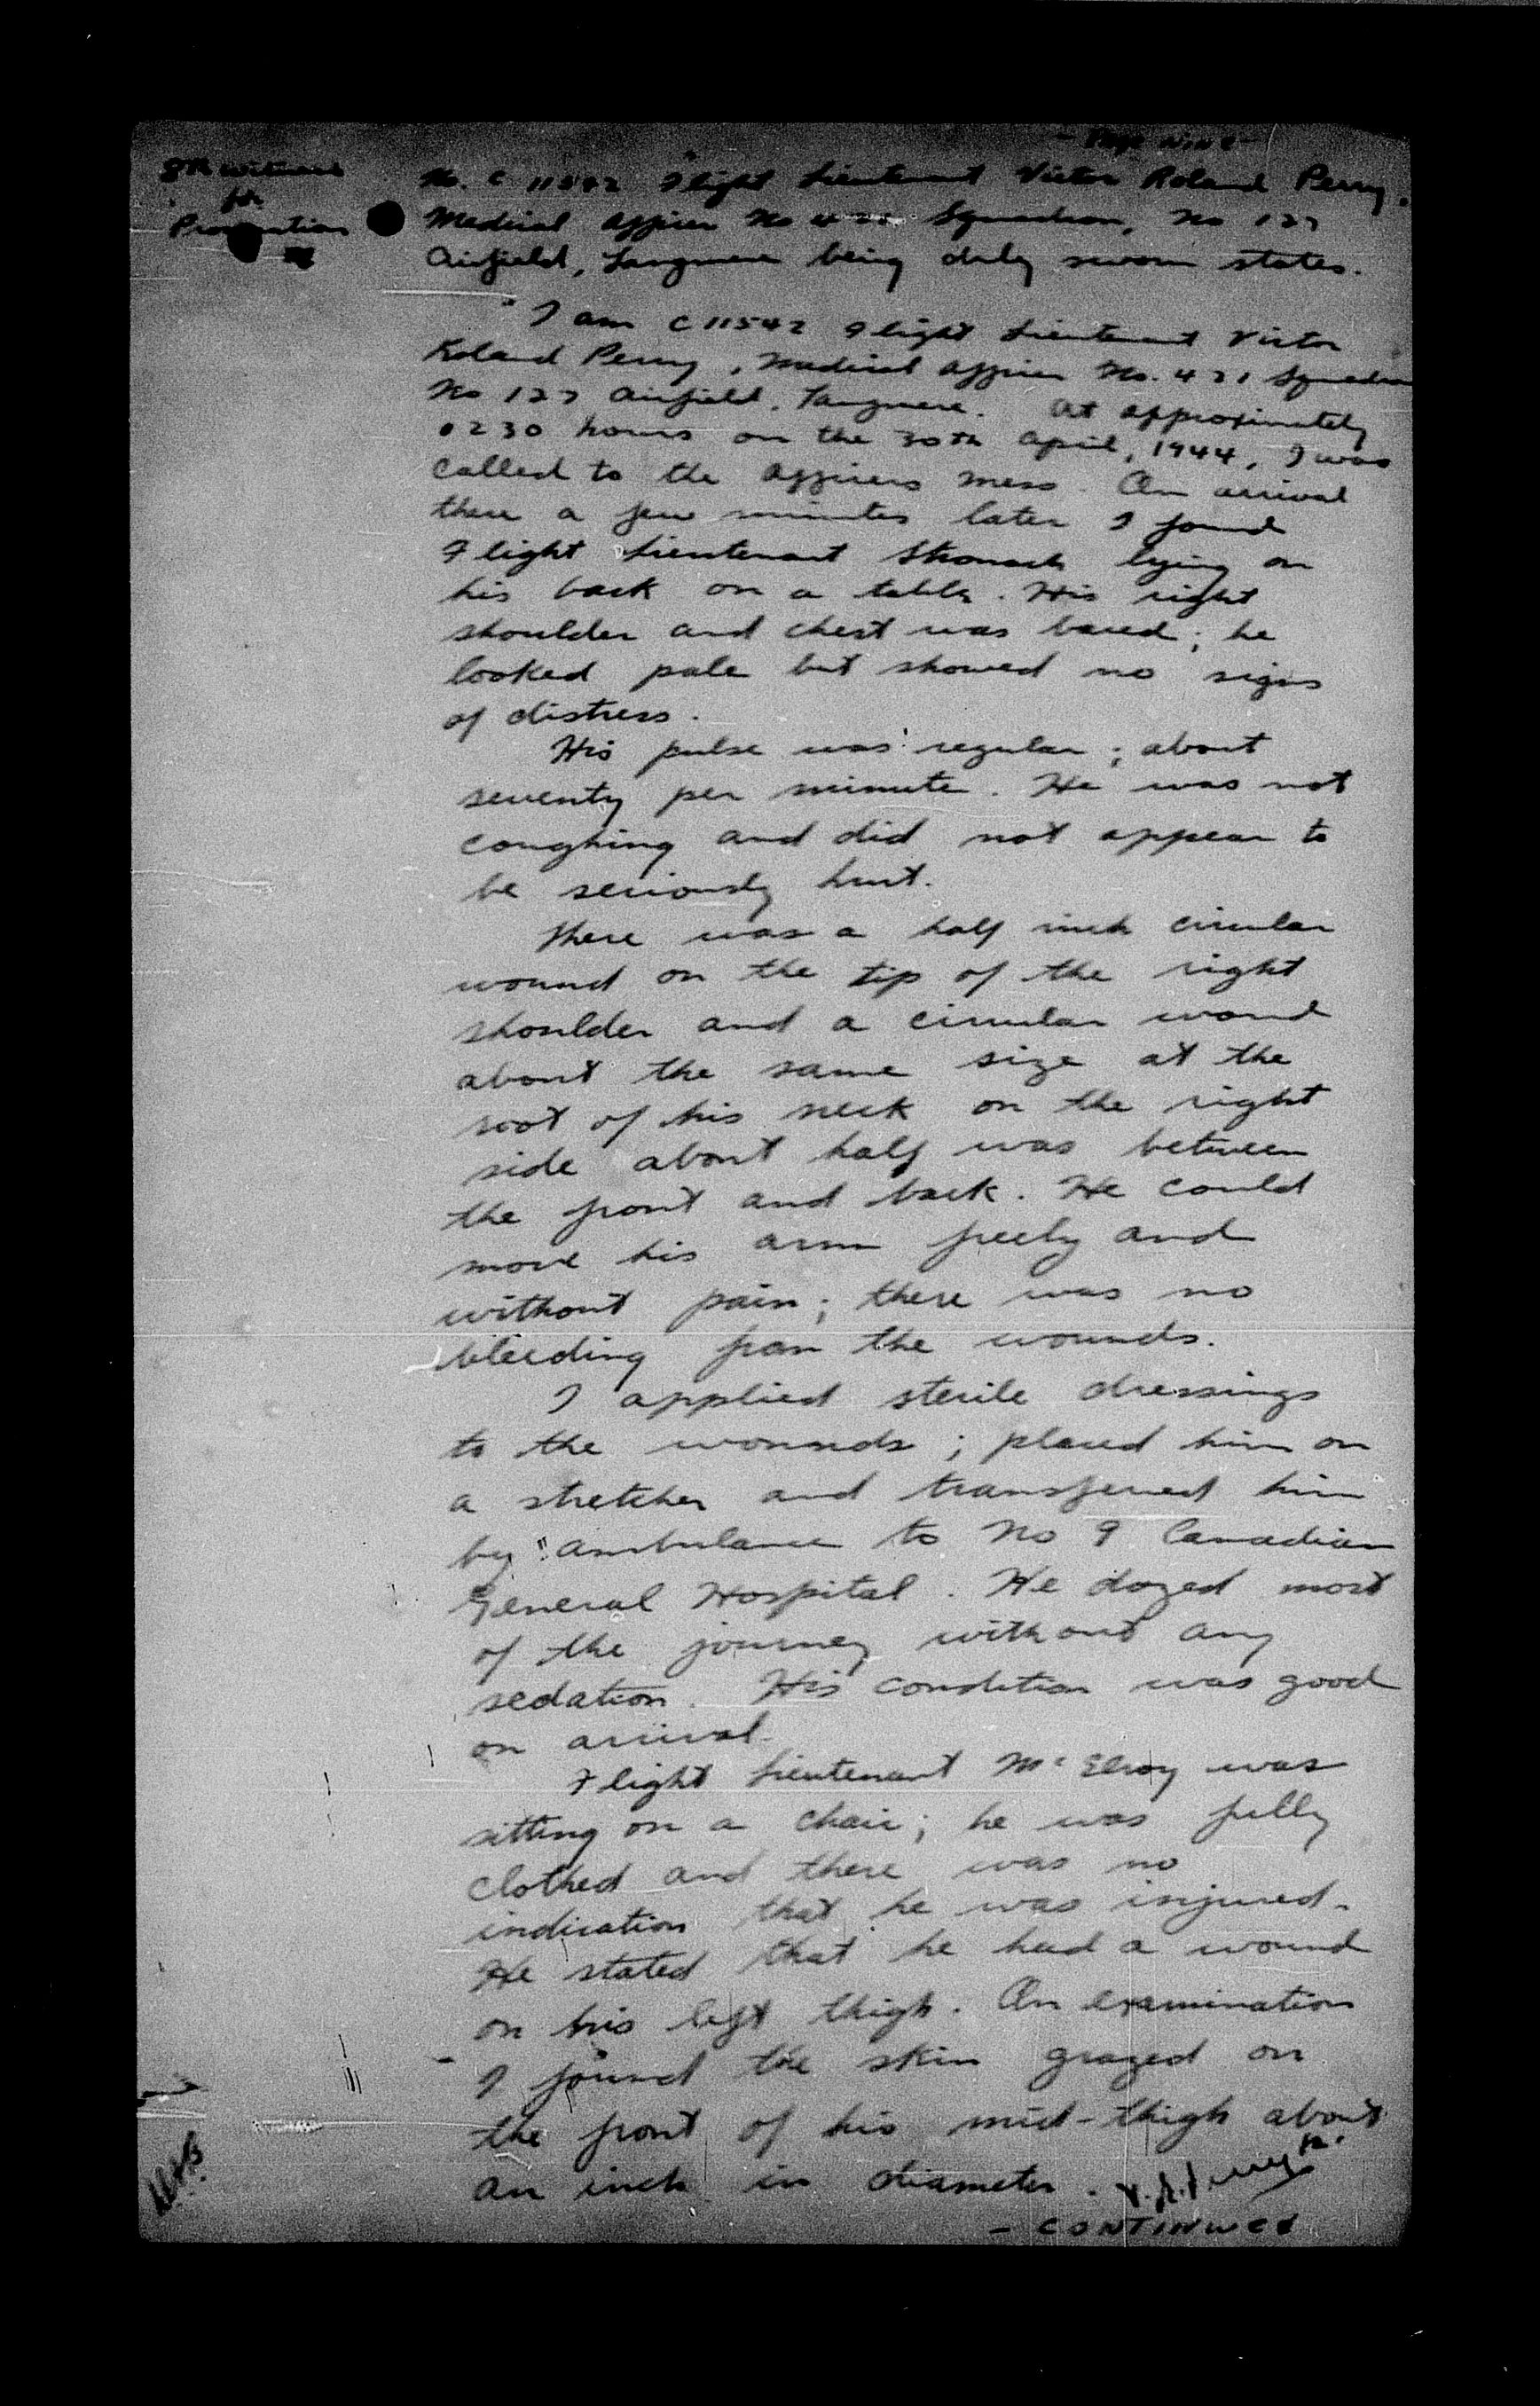 - Page Nine -
8th witness
for
Prosecution
No. C 11542 Flight Lieutenant Victor Roland Perry,
Medical Officer No Squadron, No 127
Airfield, Tangmere being duly sworn states.
"I am C 11542 Flight Lieutenant Victor
Roland Perry, Medical Officer No. 421 Squadron
No 127 Airfield, Tangmere. At approximately
0230 hours on the 30th April, 1944, I was
called to the Officers mess. On arrival
there a few minutes later I found
Flight Lieutenant lying on
his back on a table. His right
shoulder and chest was bared; he
looked pale but showed no signs
of distress.
His pulse was regular; about
seventy per minute. He was not
coughing and did not appear to
be seriously hurt.
There was a half inch circular
wound on the tip of the right
shoulder and a circular wound
about the same size at the
root of his neck on the right
side about half was between
the front and back. He could
move his arm freely and
without pain; there was no
bleeding from the wounds.
I applied sterile dressings
to the wounds; placed him on
a stretcher and transferred him
by ambulance to No 9 Canadian
General Hospital. He dozed most
of the journey without any
sedation. His condition was good
on arrival.
Flight Lieutenant McElroy was
sitting on a chair; he was fully
clothed and there was no
indication that he was injured.
He stated that he had a wound
on his left thigh. On examination
I found the skin grazed on
the front of his mid-thigh about
an inch in diameter. V.R. Perry F/L.
- CONTINUED